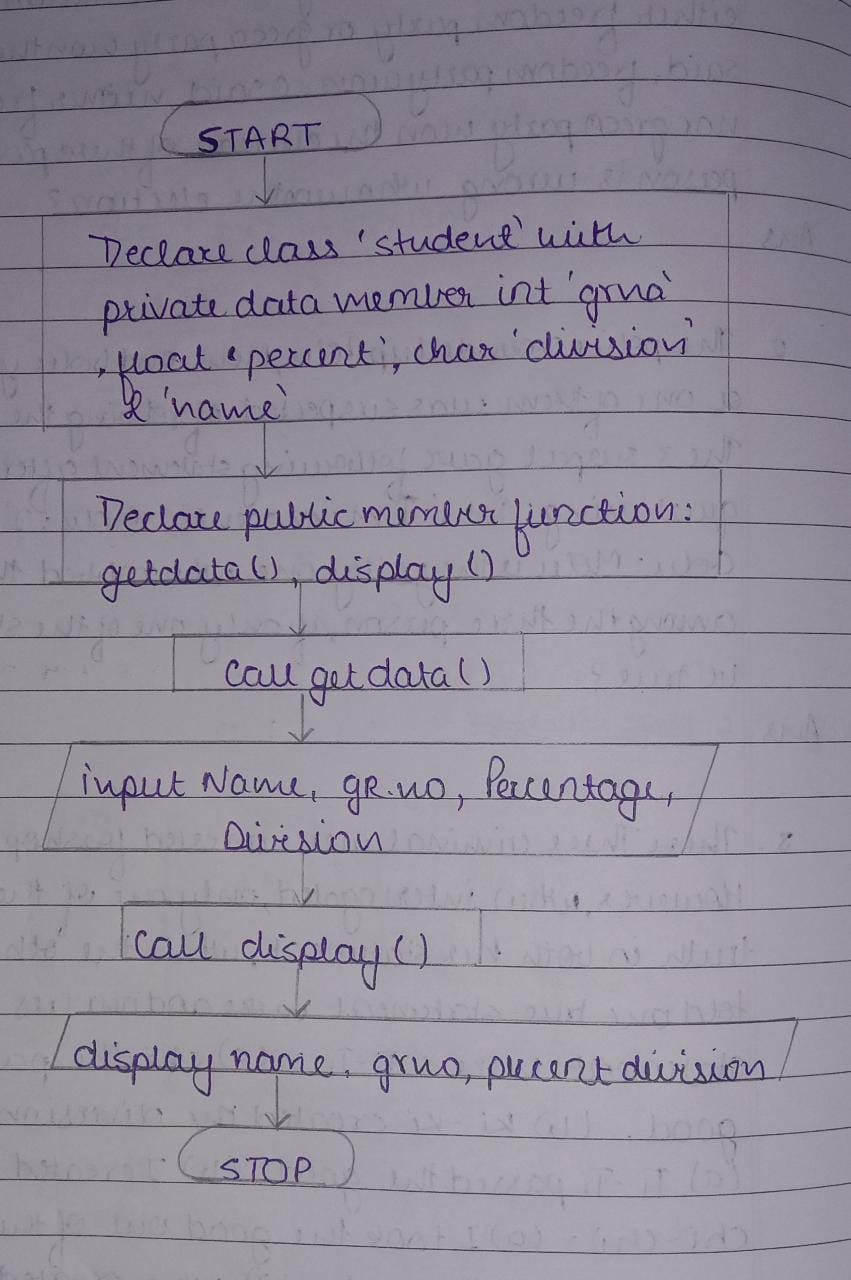 START
Declare class 'student' with
private data member int 'grno'
, float 'percent', char 'division'
& 'name'
Declare public member function:
getdata(), display()
Call getdata()
input Name, gR.no, Percentage,
Division
Call display()
display name, grno, percent division
STOP